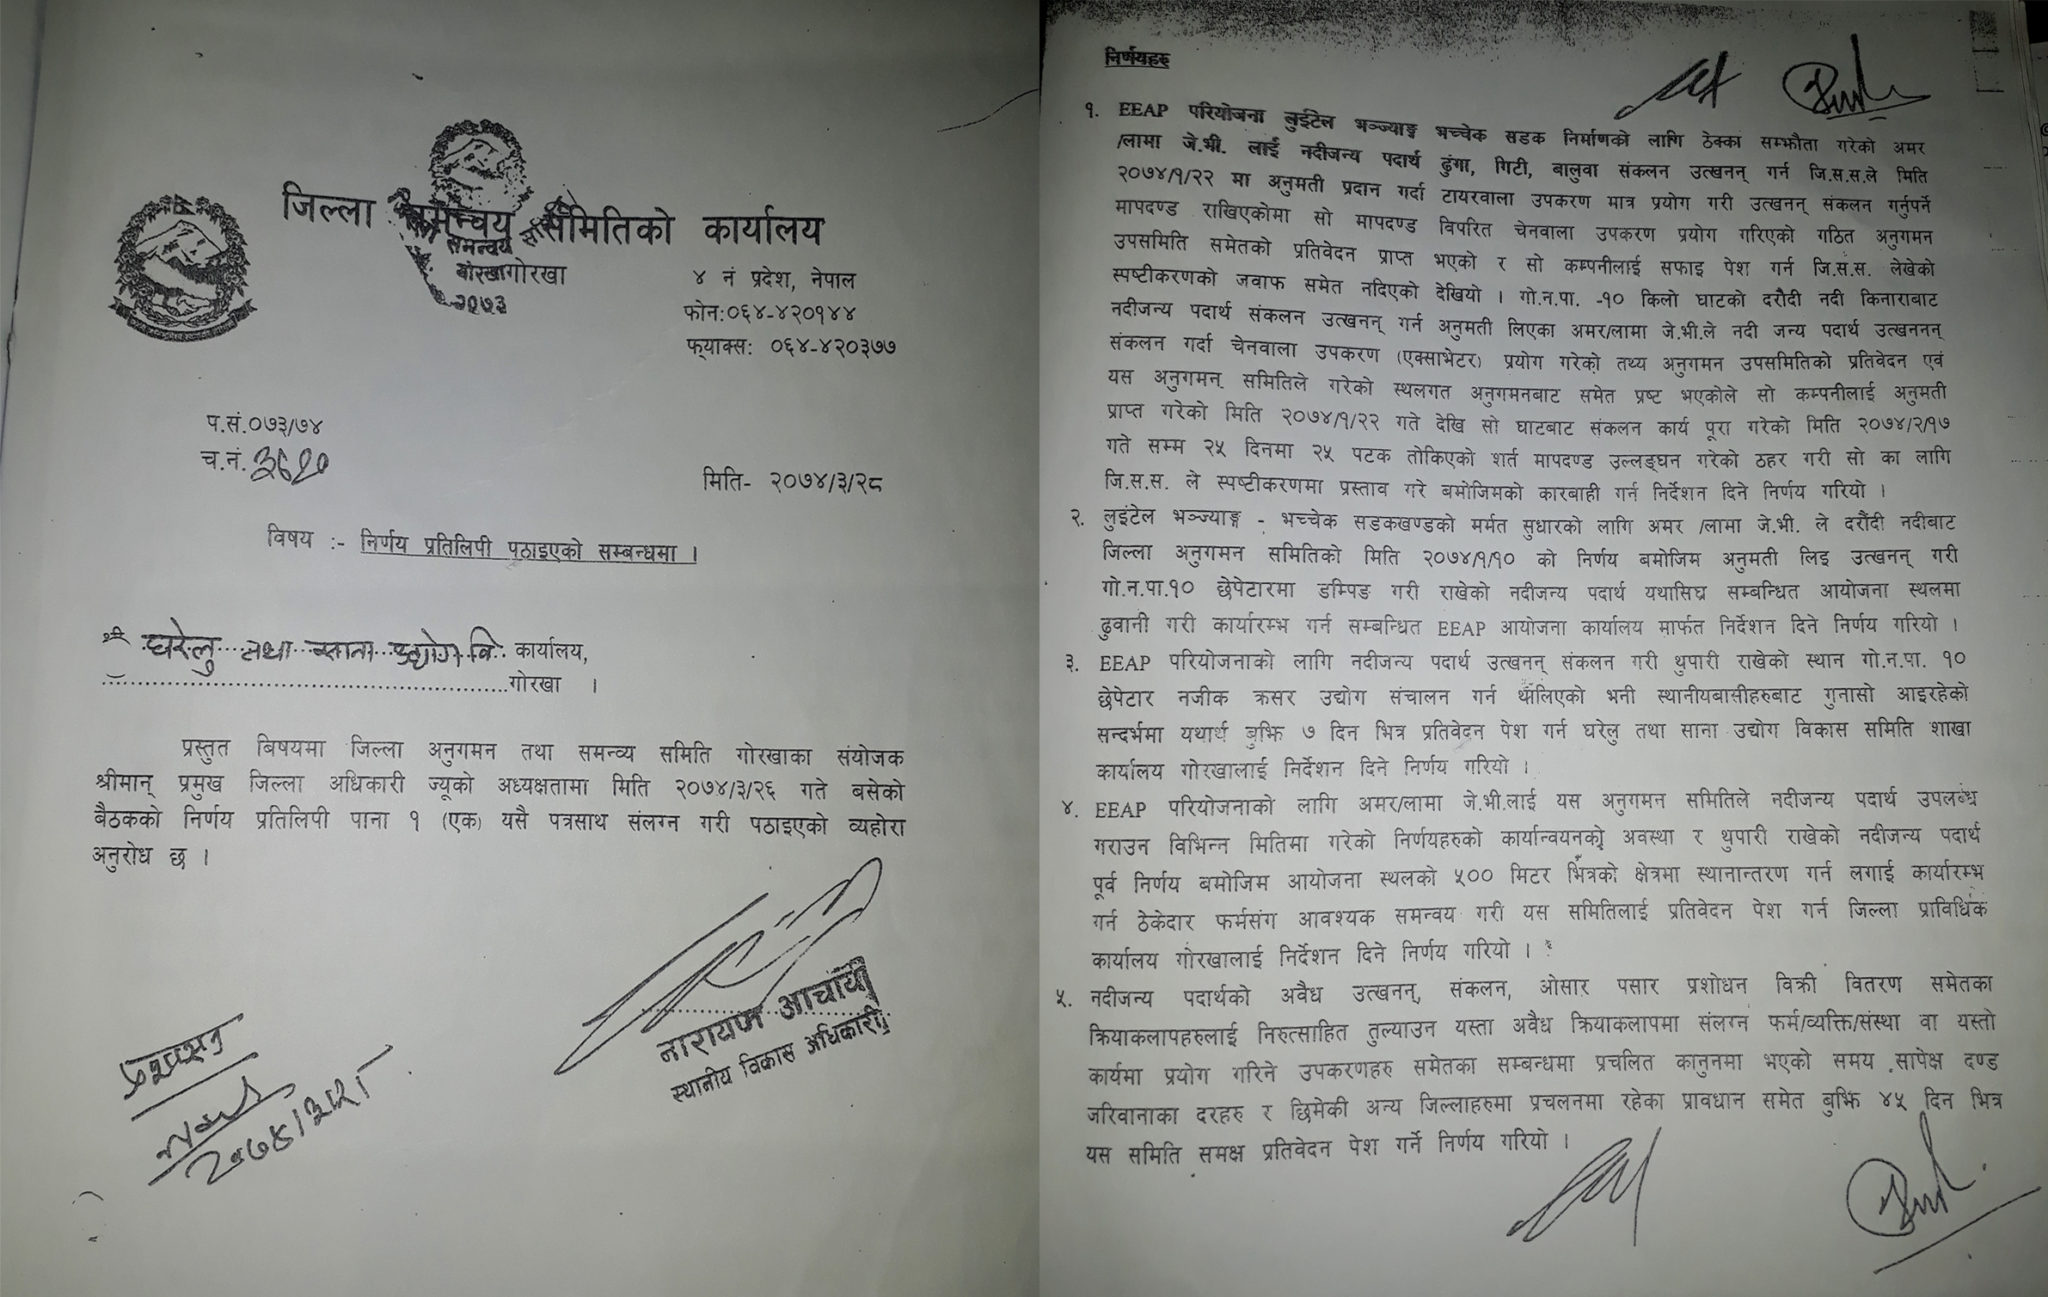 जिल्ला समन्वय समितिको कार्यालय
समन्वय
गोरखा
२०७३
४ नं प्रदेश, नेपाल
फोन:०६४-४२०१४४
फ्याक्स: ०६४-४२०३७७
प.सं.०७३/७४
च.नं.
मिति- २०७४/३/२८
विषय :- निर्णय प्रतिलिपी पठाइएको सम्बन्धमा ।
श्री घरेलु तथा साना उद्योग वि. कार्यालय,
गोरखा ।
प्रस्तुत बिषयमा जिल्ला अनुगमन तथा समन्व्य समिति गोरखाका संयोजक
श्रीमान् प्रमुख जिल्ला अधिकारी ज्यूको अध्यक्षतामा मिति २०७४/३/२६ गते बसेको
बैठकको निर्णय प्रतिलिपी पाना १ (एक) यसै पत्रसाथ संलग्न गरी पठाइएको व्यहोरा
अनुरोध छ ।
नारायण आचार्य
स्थानीय विकास अधिकारी
निर्णयहरु
१. EEAP परियोजना लुईटेल भञ्ज्याङ्ग भच्चेक सडक निर्माणको लागि ठेक्का सम्झौता गरेको अमर
/लामा जे.भी. लाई नदीजन्य पदार्थ ढुंगा, गिटी, बालुवा संकलन उत्खनन् गर्न जि.स.स.ले मिति
२०७४/१/२२ मा अनुमती प्रदान गर्दा टायरवाला उपकरण मात्र प्रयोग गरी उत्खनन् संकलन गर्नुपर्ने
मापदण्ड राखिएकोमा सो मापदण्ड विपरित चेनवाला उपकरण प्रयोग गरिएको गठित अनुगमन
उपसमिति समेतको प्रतिवेदन प्राप्त भएको र सो कम्पनीलाई सफाइ पेश गर्न जि.स.स. लेखेको
स्पष्टीकरणको जवाफ समेत नदिएको देखियो । गो.न.पा. -१० किलो घाटको दरौदी नदी किनाराबाट
नदीजन्य पदार्थ संकलन उत्खनन् गर्न अनुमती लिएका अमर/लामा जे.भी.ले नदी जन्य पदार्थ उत्खननन्
संकलन गर्दा चेनवाला उपकरण (एक्साभेटर) प्रयोग गरेको तथ्य अनुगमन उपसमितिको प्रतिवेदन एवं
यस अनुगमन् समितिले गरेको स्थलगत अनुगमनबाट समेत प्रष्ट भएकोले सो कम्पनीलाई अनुमती
प्राप्त गरेको मिति २०७४/१/२२ गते देखि सो घाटबाट संकलन कार्य पूरा गरेको मिति २०७४/२/१७
गते सम्म २५ दिनमा २५ पटक तोकिएको शर्त मापदण्ड उल्लङ्घन गरेको ठहर गरी सो का लागि
जि.स.स. ले स्पष्टीकरणमा प्रस्ताव गरे बमोजिमको कारबाही गर्न निर्देशन दिने निर्णय गरियो ।
२. लुइंटेल भञ्ज्याङ्ग - भच्चेक सडकखण्डको मर्मत सुधारको लागि अमर /लामा जे.भी. ले दरौंदी नदीबाट
जिल्ला अनुगमन समितिको मिति २०७४/१/१० को निर्णय बमोजिम अनुमती लिइ उत्खनन् गरी
गो.न.पा.१० छेपेटारमा डम्पिङ गरी राखेको नदीजन्य पदार्थ यथासिघ्र सम्बन्धित आयोजना स्थलमा
ढुवानी गरी कार्यारम्भ गर्न सम्बन्धित EEAP आयोजना कार्यालय मार्फत निर्देशन दिने निर्णय गरियो ।
३. EEAP परियोजनाको लागि नदीजन्य पदार्थ उत्खनन् संकलन गरी थुपारी राखेको स्थान गो.न.पा. १०
छेपेटार नजीक क्रसर उद्योग संचालन गर्न थालिएको भनी स्थानीयबासीहरुबाट गुनासो आइरहेको
सन्दर्भमा यथार्थ बुझि ७ दिन भित्र प्रतिवेदन पेश गर्न घरेलु तथा साना उद्योग विकास समिति शाखा
कार्यालय गोरखालाई निर्देशन दिने निर्णय गरियो ।
४. EEAP परियोजनाको लागि अमर/लामा जे.भी.लाई यस अनुगमन समितिले नदीजन्य पदार्थ उपलब्ध
गराउन विभिन्न मितिमा गरेको निर्णयहरुको कार्यान्वयनको अवस्था र थुपारी राखेको नदीजन्य पदार्थ
पूर्व निर्णय बमोजिम आयोजना स्थलको ५०० मिटर भित्रको क्षेत्रमा स्थानान्तरण गर्न लगाई कार्यारम्भ
गर्न ठेकेदार फर्मसंग आवश्यक समन्वय गरी यस समितिलाई प्रतिवेदन पेश गर्न जिल्ला प्राविधिक
कार्यालय गोरखालाई निर्देशन दिने निर्णय गरियो ।
५. नदीजन्य पदार्थको अवैध उत्खनन्, संकलन, ओसार पसार प्रशोधन विक्री वितरण समेतका
क्रियाकलापहरुलाई निरुत्साहित तुल्याउन यस्ता अवैध क्रियाकलापमा संलग्न फर्म/व्यक्ति/संस्था वा यस्तो
कार्यमा प्रयोग गरिने उपकरणहरु समेतका सम्बन्धमा प्रचलित कानुनमा भएको समय सापेक्ष दण्ड
जरिवानाका दरहरु र छिमेकी अन्य जिल्लाहरुमा प्रचलनमा रहेका प्रावधान समेत बुझि ४५ दिन भित्र
यस समिति समक्ष प्रतिवेदन पेश गर्ने निर्णय गरियो ।